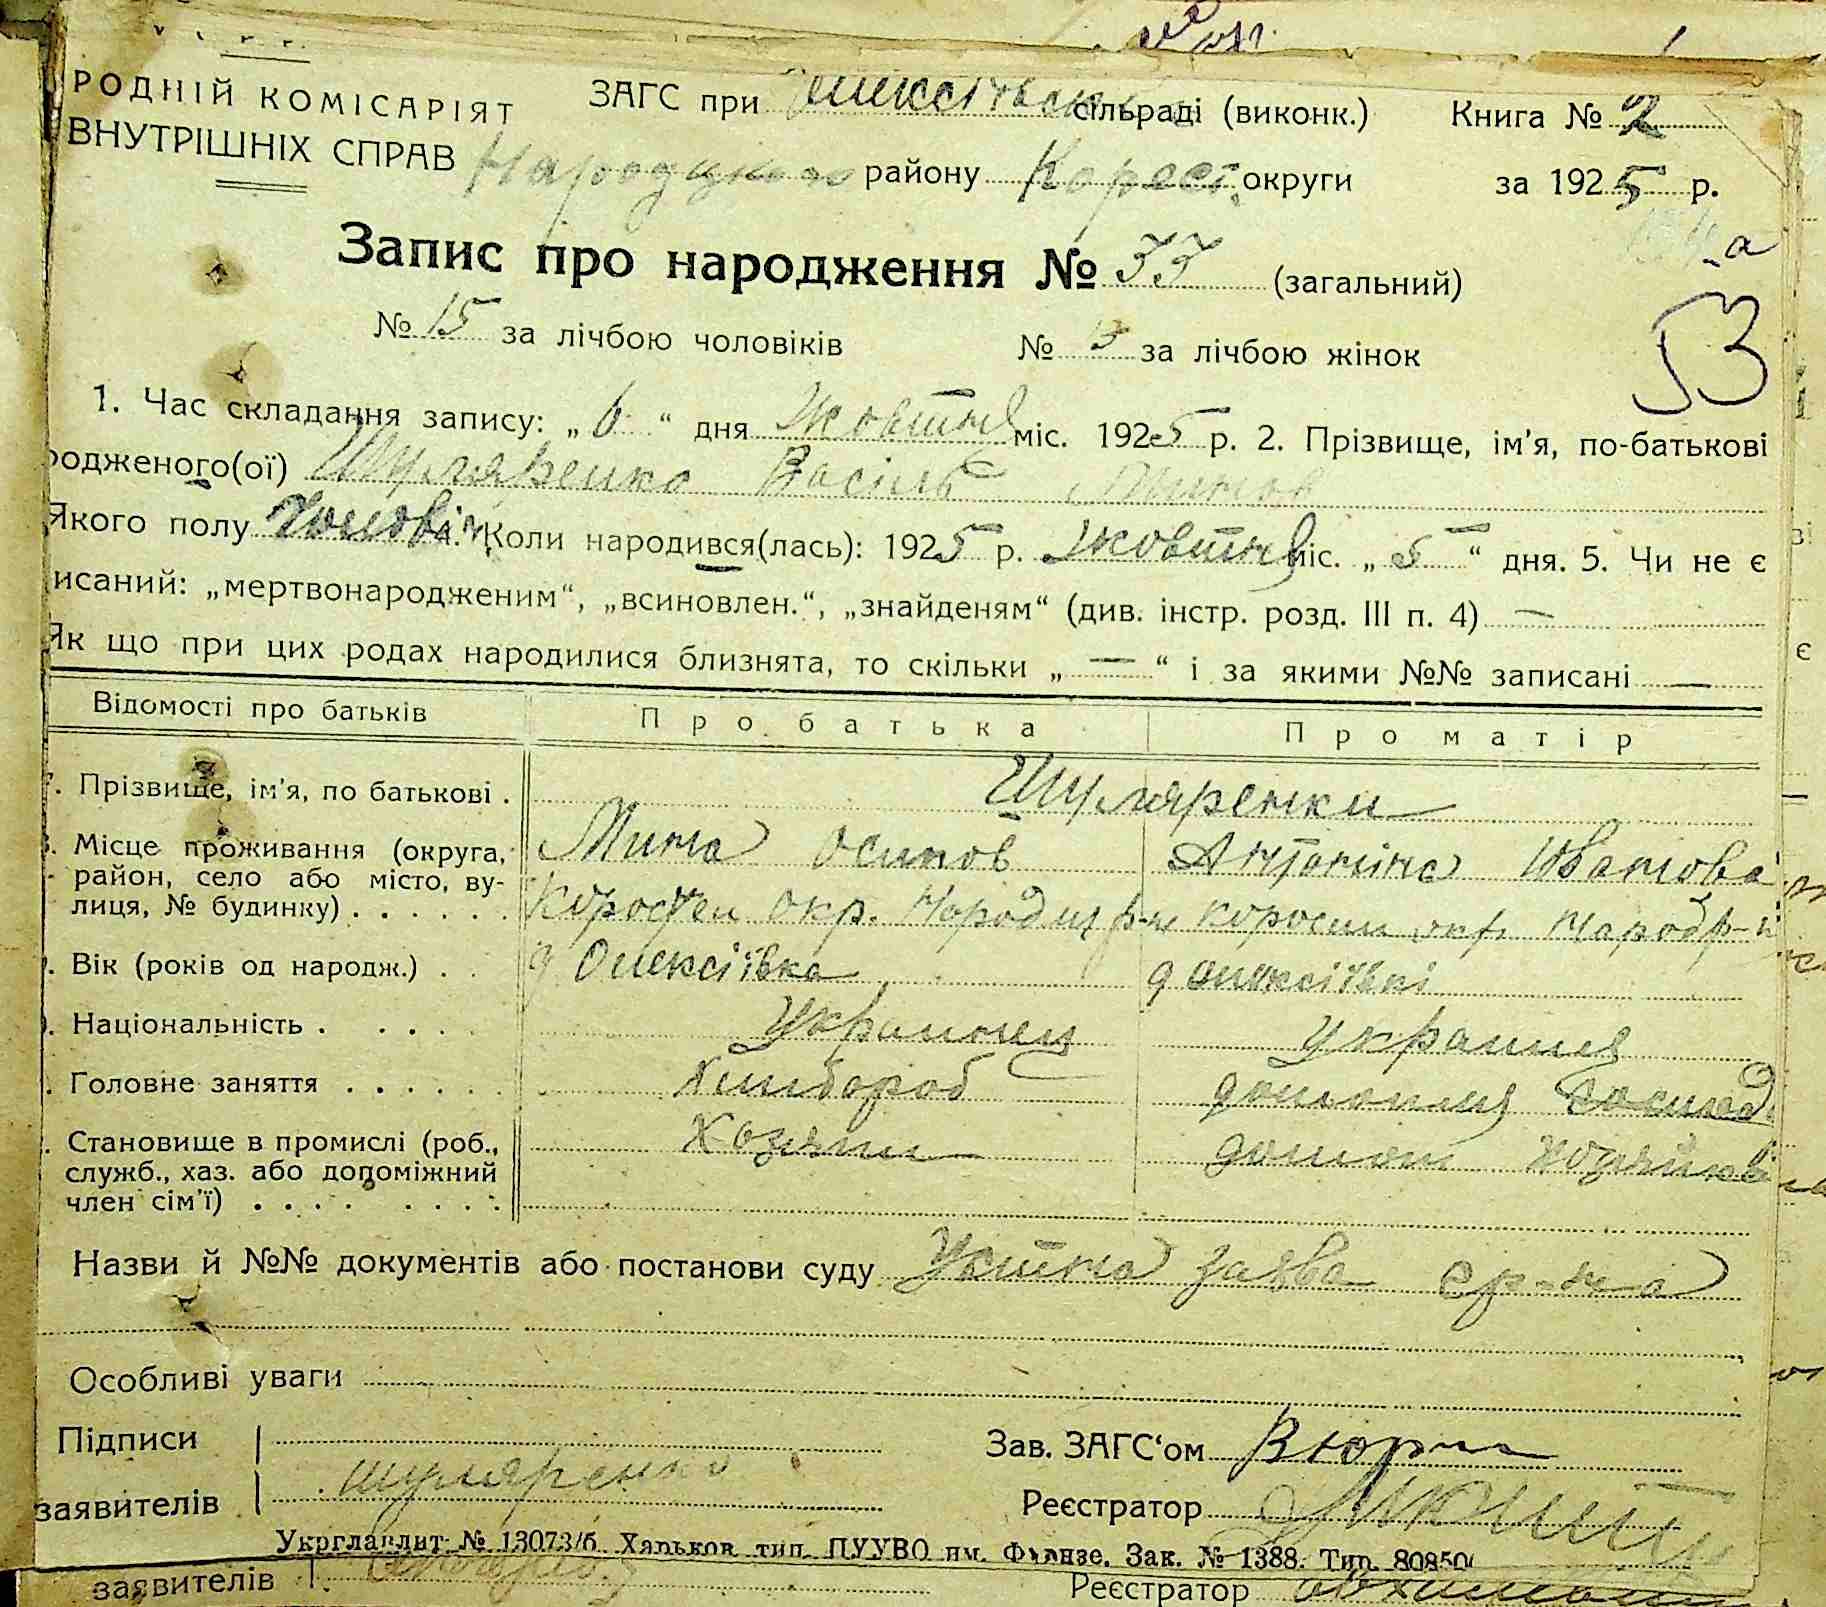 РОДНІЙ КОМІСАРІЯТ
ВНУТРІШНІХ СПРАВ
ЗАГС при Олексіївськ сільраді (виконк.) Книга № 2
району Корост. округи за 1925 р.
а
Запис про народження № 33 (загальний)
53
№ 15 за лічбою чоловіків № за лічбою жінок
1. Час складання запису: „6“ дня Жовтня міс. 1925 р. 2. Прізвище, ім'я, по-батькові
родженого(ої) Шуляренко Василь Минов
Якого полу чоловіч. Коли народився(лась): 1925 р. Жовтня міс. „5“ дня. 5. Чи не є
исаний: „мертвонародженим“, „всиновлен.“, „знайденям“ (див. інстр. розд. III п. 4) —
Як що при цих родах народилися близнята, то скільки „—“ і за якими №№ записані —
Відомості про батьків Про батька Про матір
Прізвище, ім'я, по батькові . Шуляренки
Місце проживання (округа, район, село або місто, вулиця, № будинку) . . . . . Мина осипов Антоніна Ивановa
Коростен окр. Народиц р-н коросten окр. Народ р-н
Вік (років од народж.) . . д Олексіївка д олексіївкі
Національність . . . . Українец Українця
Головне заняття . . . . . Хлібороб домашня господ.
Становище в промислі (роб., служб., хаз. або допоміжний член сім'ї) . . . . . . . . Хозяин
Назви й №№ документів або постанови суду Устна заява
Особливі уваги
Підписи Зав. ЗАГС'ом
заявителів шуляренко Реєстратор
Укрглавлит № 13073/б. Харьков, тип. ПУУВО им. Фрунзе. Зак. № 1388. Тир. 80850
заявителів Реєстратор